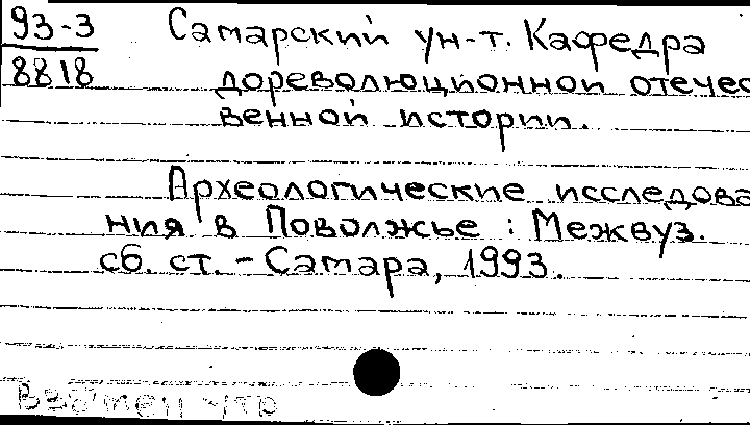 93-3
8818
Самарский ун-т. Кафедра
дореволюционной отечес
венной истории.
Археологические исследова
ния в Поволжье : Межвуз.
сб. ст. - Самара, 1993.